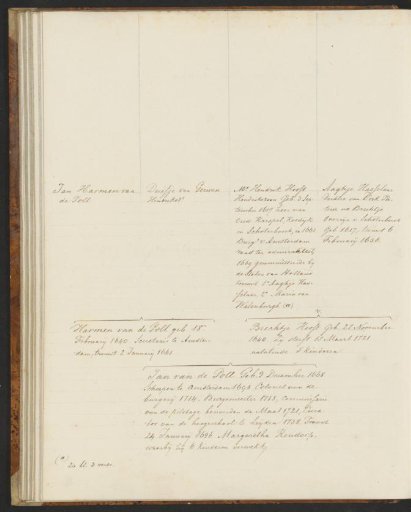 Jan Harmen van
de Poll
Duefje van Gerwen
Mr. Hendrik Hooft
Hendriksson Geb. 3 Sep
tember 1617, heer van
Oud Karspel, Koedijk
en Schoterbosch, in 1662
Burgr. v. Amsterdam
raad ter admiraliteit,
1664 gecommitteerde bij
de Staten van Holland
trouwt 1o. Aagtje Has
selaer 2o. Maria van
Walenburgh (a)
Aagtje Hasselaer
dochter van Dirk
en Brechtje
Overrijn v. Schoterbosch
Geb. 1617, trouwt 6
February 1636.
Harmen van de Poll geb. 18
February 1640 Secretaris te Amster
dam, trouwt 2 January 1661
Brechtje Hooft geb. 22 November
1640, Zij sterft 10 Maart 1721
nalatende 8 kinderen
Jan van de Poll Geb. 3 December 1668
Schepen te Amsterdam 1698 Colonel van de
burgery 1714. Burgemeester 1718, Commissaris
van de pilotage benoorden de Maas 1721, Cura
tor van de hoogeschool te Leyden 1738. Trouwt
24 January 1696 Margaretha Rendorp,
waarbij hij 6 kinderen verwekt,
(a)